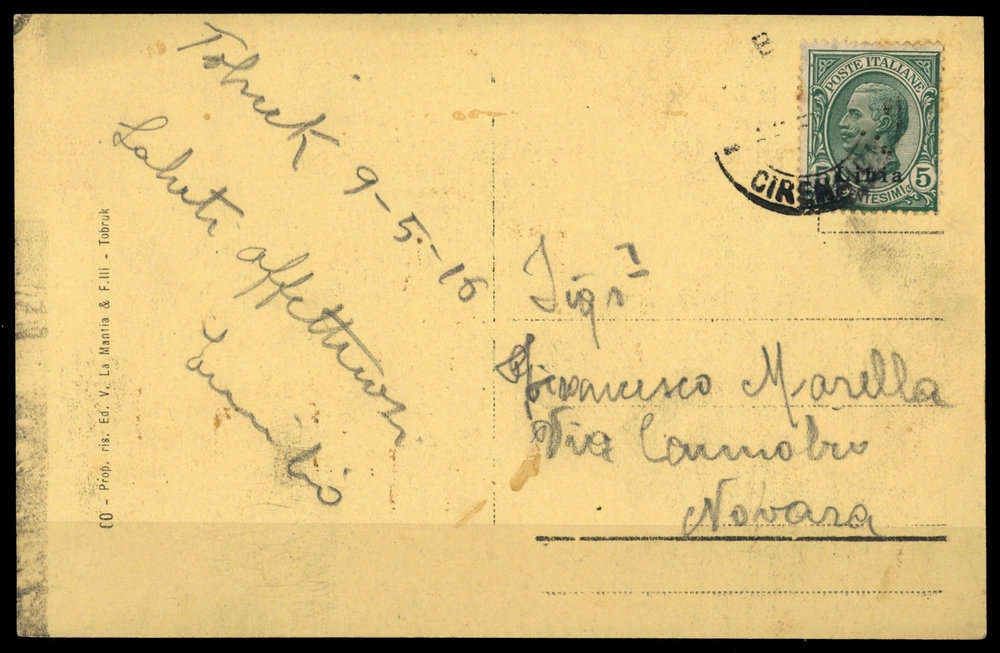 Tobruk 9-5-16
Saluti affettuosi
CO - Prop. ris. Ed. V. La Mantia & F.lli - Tobruk
POSTE ITALIANE
Libia
5
CENTESIMI
Sigr
Francesco Marella
Via Cannobio
Novara